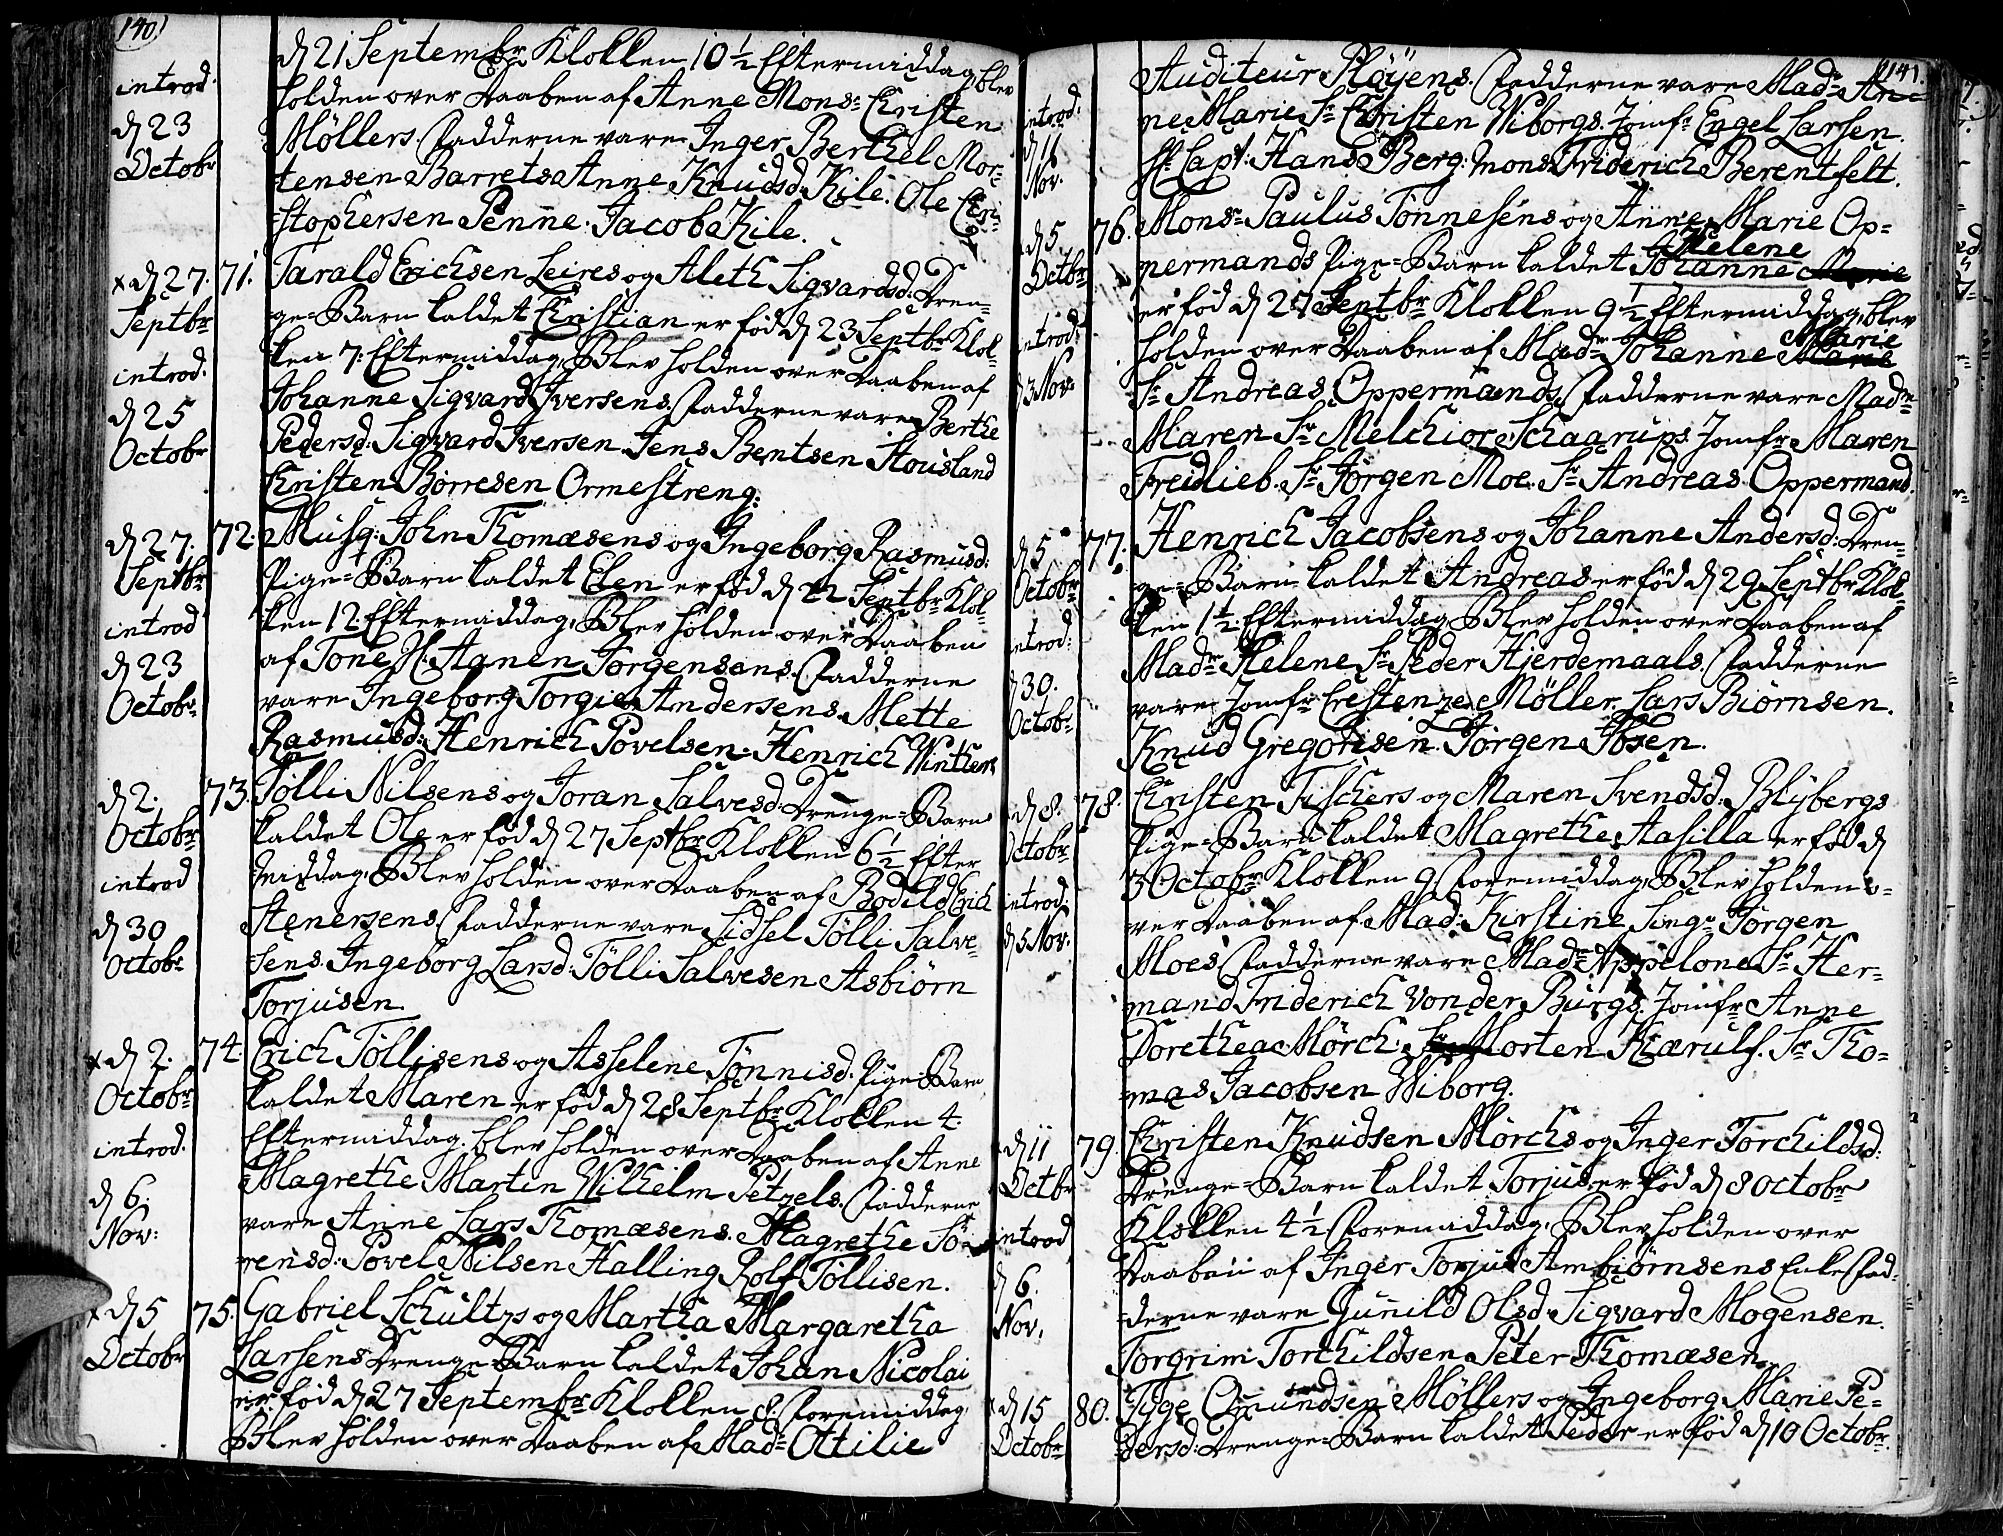 140
introd.
d 23
Octobr
d 21 Septembr Klokken 10 1/2 Eftermiddag, blev
holden over Daaben af Anne Monsr Christen
Möllers. Fadderne vare Inger Berthel Mor-
tensen Barrets Anne Knudsd: Kile. Ole Chri-
stophersen Penne. Jacob Kile.
x d 27. 71.
Septbr
introd.
d 25
Octobr
Tarald Erichsen Leires og Aleth Sigvardsd: Dren-
ge-Barn kaldet Christian er föd d 23 Septbr Klok-
ken 7: Eftermiddag, Blev holden over Daaben af
Johanne Sigvard Iversens. Fadderne vare Berthe
Pedersd: Sigvard Iversen Jens Bentsen Stousland
Christen Börresen Ormestreng.
d 27. 72.
Septbr
introd
d 23
Octobr
Musq: John Thomæsens og Ingeborg Rasmusd:
Pige-Barn kaldet Elen er föd d 22 Septbr Klok-
ken 12. Eftermiddag, Blev holden over Daaben
af Tone H. Aanen Jörgensens. Fadderne
vare Ingeborg Torgier Andersens Mette
Rasmusd: Henrich Povelsen. Henrich Winthers
d 2. 73.
Octobr
introd
d 30
Octobr
Tölli Nilsens og Joran Salvesd: Drenge-Barn
kaldet Ole er föd d 27 Septbr Klokken 6 1/2 Efter
middag, Blev holden over Daaben af Bodild Erich
Stenersens. Fadderne vare Sidsel Tölli Salve-
sens. Ingeborg Larsd: Tölli Salvesen Asbiörn
Torjusen.
x d 2. 74.
Octobr
introd.
d 6.
Nov:
Erich Töllisens og Asselene Tönnisd. Pige-Barn
kaldet Maren er föd d 28 Septbr Klokken 4.
Eftermiddag. blev holden over Daaben af Anne
Magrethe Martin Wilhelm Petzels. Fadderne
vare Anne Lars Thomæsens. Magrethe Sö-
rensd: Povel Nilsen Halling Rolf Töllisen.
x d 5 75.
Octobr
Gabriel Schultzs og Martha Margaretha
Larsens Drenge Barn kaldet Johan Nicolai
er föd d 27 Septembr Klokken 8. Foremiddag,
Blev holden over Daaben af Madr Ottilie
141.
introd:
d 11
Nov.
Auditeur Plöyens. Fadderne vare Madr An-
ne Marie Sr Christen Wiborgs. Jomfr Engel Larsen.
Hr Capt: Hans Berg. Monsr Friderich Berentfelt.
d 5 76.
Octbr
introd:
d 3 Nov.
Monsr Paulus Tönnesens og Anne Marie Op-
Helene
permands Pige-Barn kaldet Johanne Marie
er föd d 27 Septbr Klokken 9 1/2 Eftermiddag, blev
Marie
holden over Daaben af Madr Johanne Marie
Sr Andreas Oppermands. Fadderne vare Madm
Maren Sr Melchior Schaarups. Jomfr Maren
Freidlieb. Sr Jörgen Moe. Sr Andreas Oppermand.
d 5 77.
Octobr
introd:
d 30.
Octobr
Henrich Jacobsens og Johanne Andersd: Dren-
ge-Barn kaldet Andreas er föd d 29 Septbr Klok-
ken 1 1/2. Eftermiddag, Blev holden over Daaben af
Madr Helene Sr Peder Hjerdemaals. Fadderne
vare Jomfr Crestenze Möller. Lars Biörnsen.
Knud Gregorisen. Jörgen Ibsen.
d 8. 78.
Octobr
introd:
d 5 Nov.
Christen Fischers og Maren Svendsd: Blybergs
Pige-Barn kaldet Magrethe Aasilla er föd d
3 Octobr Klokken 9 Foremiddag, Blev holden o-
ver Daaben af Mad: Kirstine Singr Jörgen
Moes. Fadderne vare Madr Appelone Sr Her-
mand Friderich von der Burgs. Jomfr Anne
Dorethea Mörch. Morten Kjærulf. Sr Tho-
mas Jacobsen Wiborg.
d 11 79.
Octbr
introd
d 6.
Nov.
Christen Knudsen Mörchs og Inger Torchildsd:
Drenge-Barn kaldet Torjus er föd d 8 Octobr
Klokken 4 1/2 Foremiddag, Blev holden over
Daaben af Inger Torjus Ambiörnsens Enke Fad-
derne vare Gunild Olsd. Sigvard Mogensen.
Torgrim Torchildsen Peter Thomæsen.
x d 15 80.
Octobr
Tyge Omundsen Möllers og Ingeborg Marie Pe-
dersd: Drenge-Barn kaldet Peder er föd d 10 Octobr.